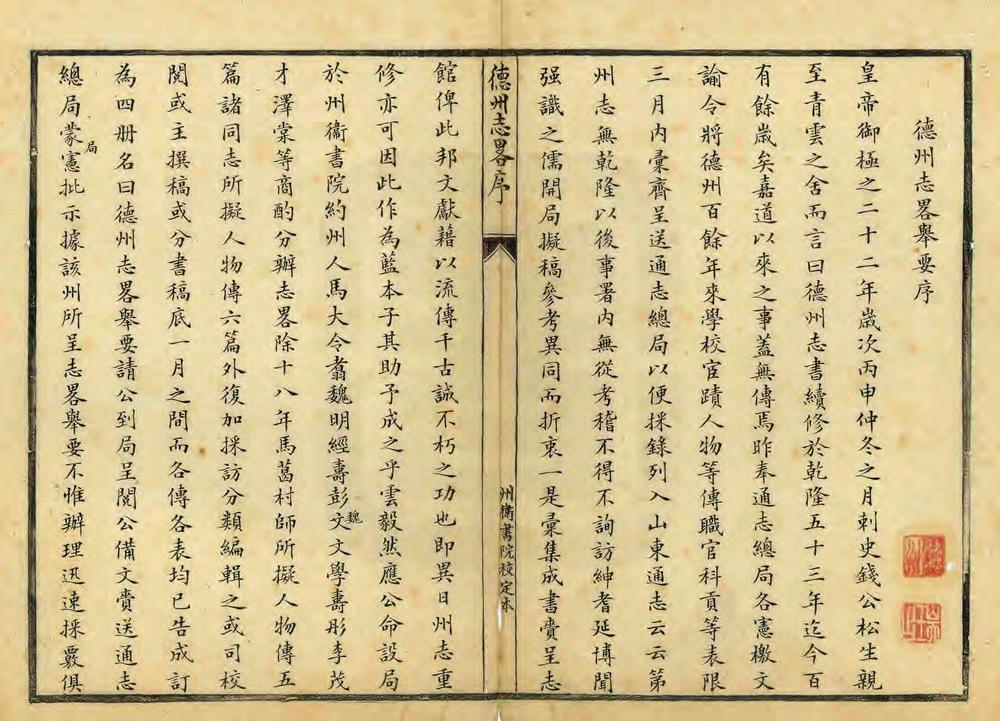 德州志畧舉要序
皇帝御極之二十二年歲次丙申仲冬之月刺史錢公松生親
至青雲之舍而言曰德州志書續修於乾隆五十三年迄今百
有餘歲矣嘉道以來之事蓋無傳焉昨奉通志總局各憲檄文
諭令將德州百餘年來學校宦蹟人物等傳職官科貢等表限
三月內彙齊呈送通志總局以便採錄列入山東通志云云第
州志無乾隆以後事署內無從考稽不得不詢訪紳耆延博聞
强識之儒開局擬稿參考異同而折衷一是彙集成書賫呈志
德州志畧序
州衛書院校定本
館俾此邦文獻藉以流傳千古誠不朽之功也即異日州志重
修亦可因此作為藍本子其助予成之乎雲毅然應公命設局
於州衛書院約州人馬大令翥魏明經壽彭魏文學壽彤李茂
才澤棠等商酌分辦志畧除十八年馬葛村師所擬人物傳五
篇諸同志所擬人物傳六篇外復加採訪分類編輯之或司校
閱或主撰稿或分書稿底一月之間而各傳各表均已告成訂
為四册名曰德州志畧舉要請公到局呈閱公備文賫送通志
總局蒙局憲批示據該州所呈志畧舉要不惟辦理迅速採覈俱